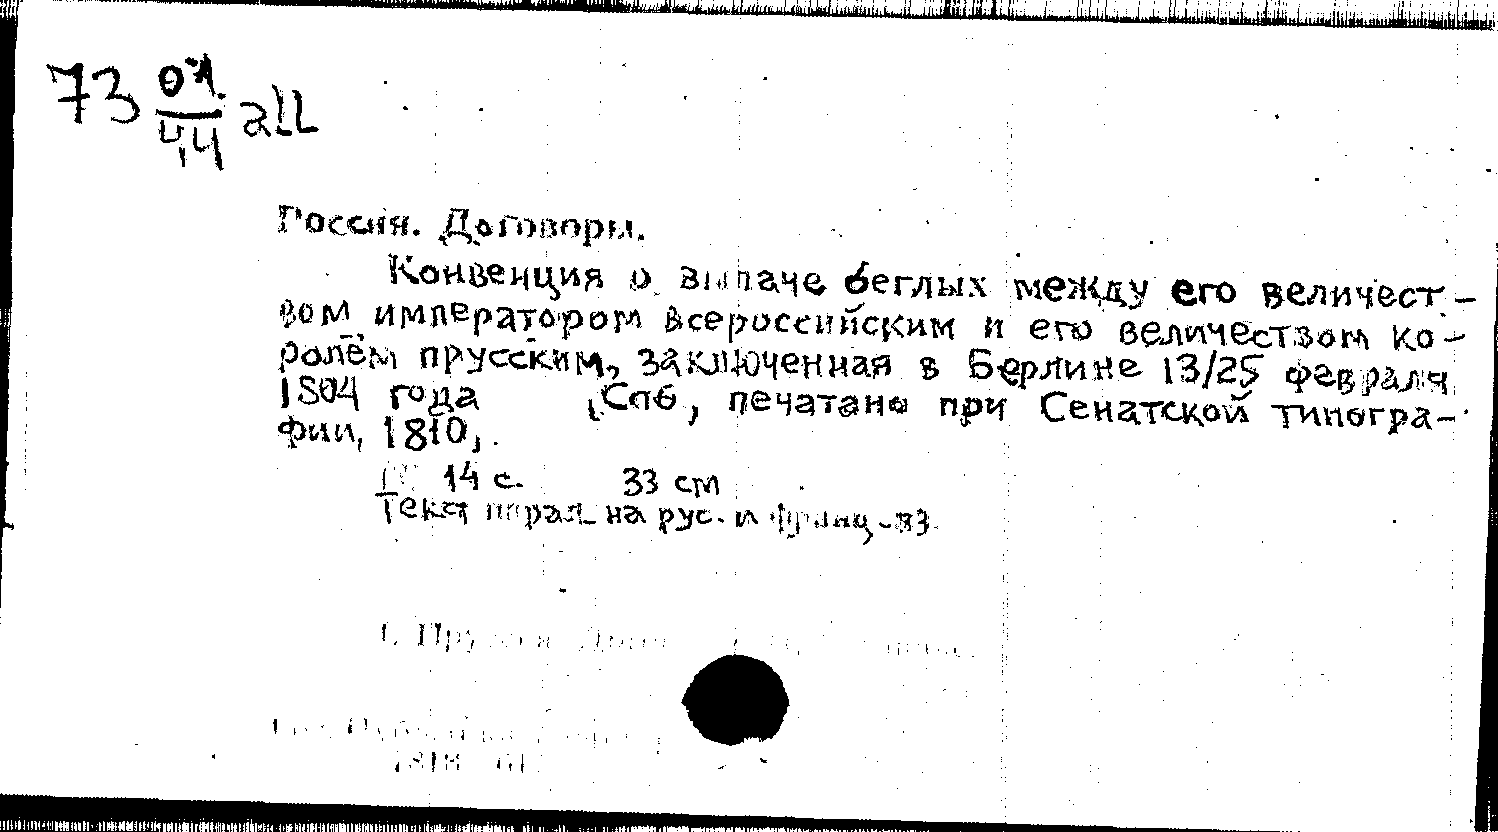 73 07/44 all
Россия. Договоры.
Конвенция о выдаче беглых между его величест-
вом императором всероссийским и его величеством ко-
ролём прусским, заключенная в Берлине 13/25 февраля
1804 года (Спб, печатано при Сенатской типогра-
фии, 1810,.
14 с. 33 см
Текст парал. на рус. и франц. яз.
1.
1818